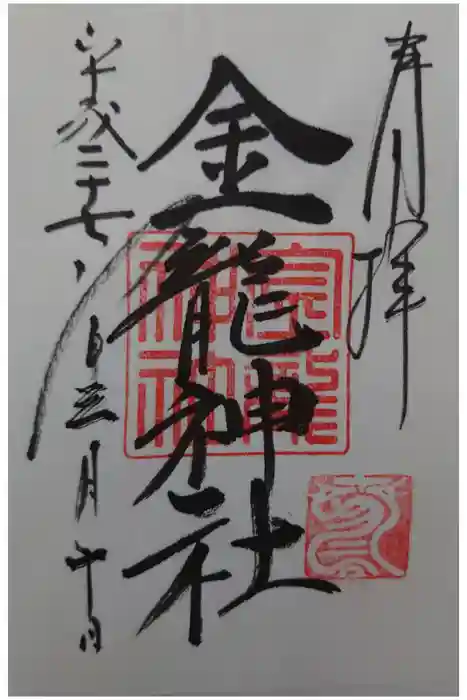 奉拝
金龍神社
平成二十七年三月十日
金龍
神社